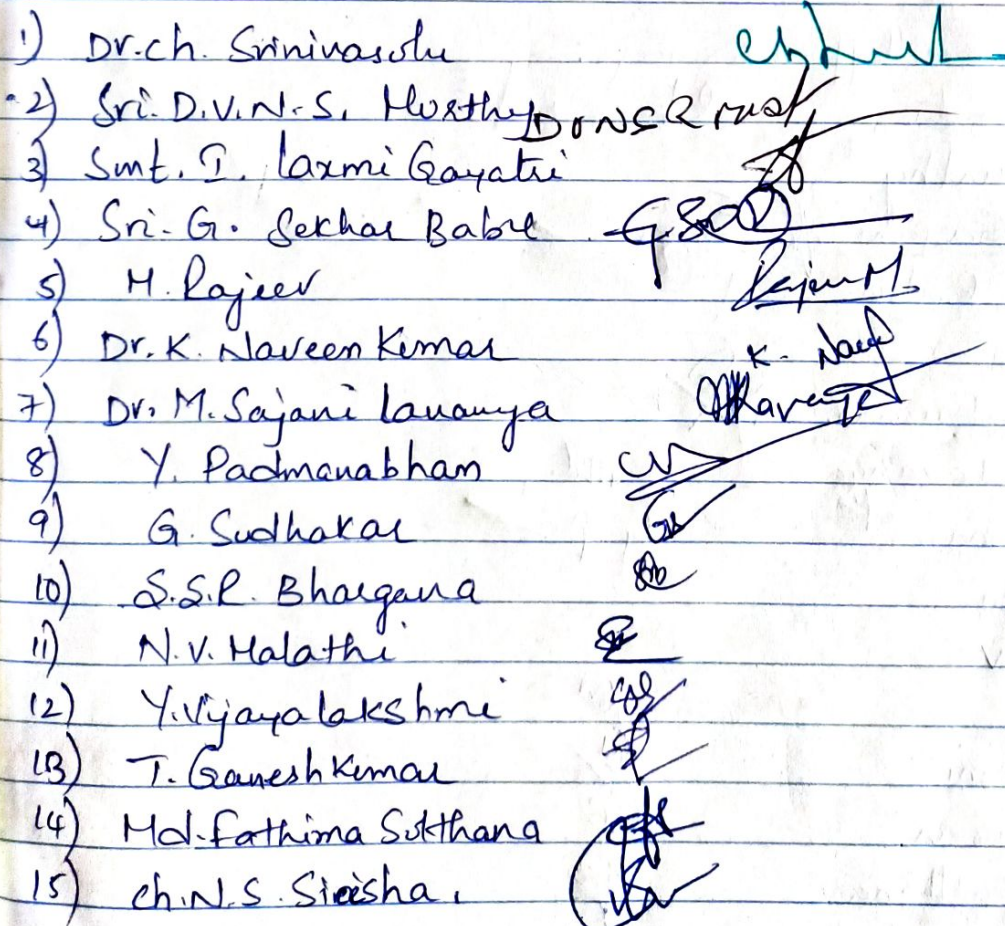 1) Dr. ch. Srinivasulu
2) Sri. D.V.N.S. Murthy
3) Smt. I. Laxmi Gayatri
4) Sri. G. Sekhar Babu
5) M. Rajeev Rajeev M.
6) Dr. K. Naveen Kumar K. Nav
7) Dr. M. Sajani lavanya
8) Y. Padmanabham
9) G. Sudhakar
10) S.S.R. Bhargava
11) N.V. Malathi
12) Y. Vijayalakshmi
13) T. Ganesh Kumar
14) Md. Fathima Sulthana
15) ch. N. S. Sirisha.